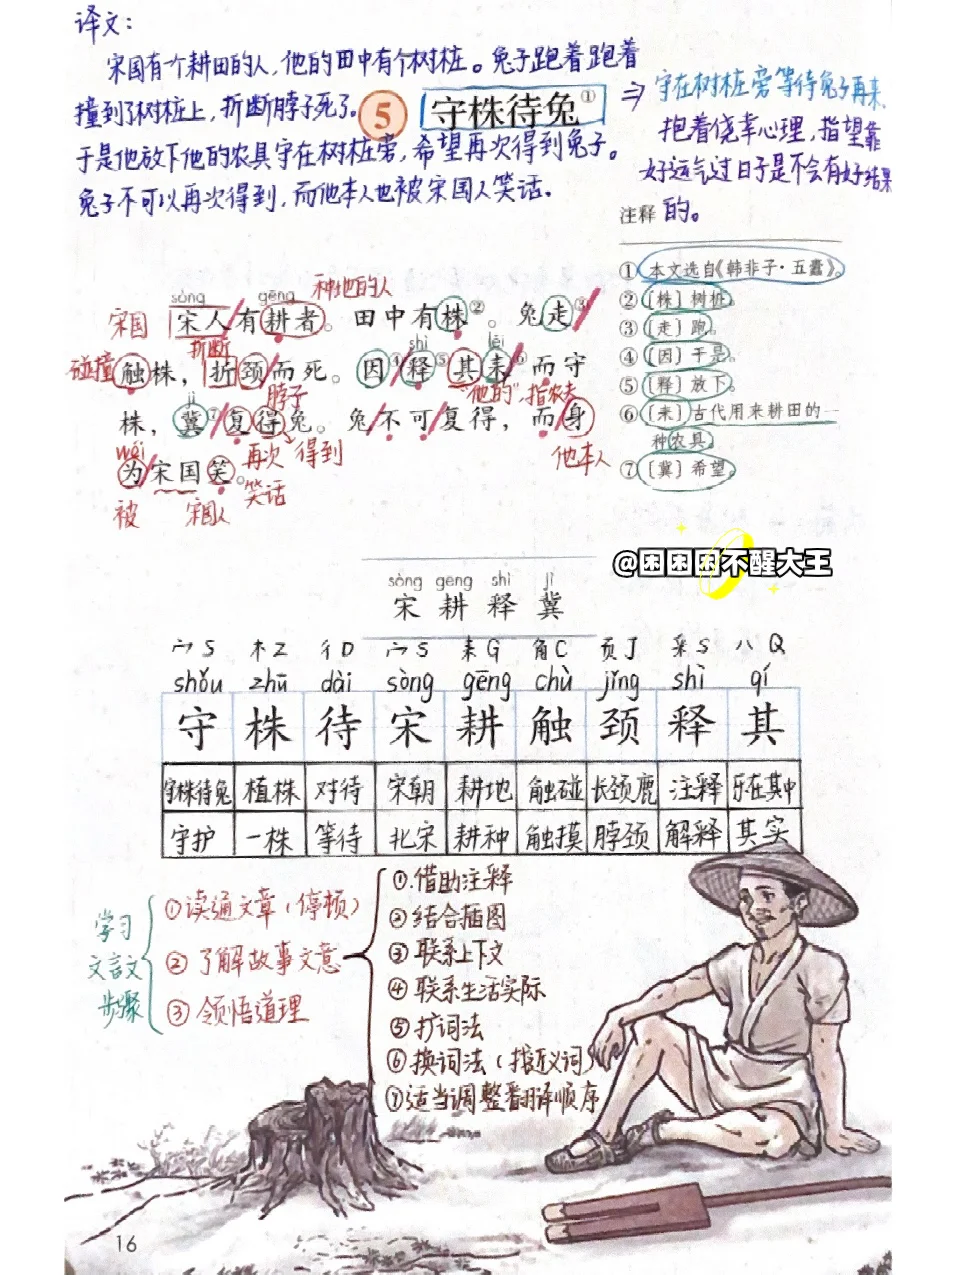 译文：
宋国有个耕田的人，他的田中有个树桩。兔子跑着跑着
撞到了树桩上，折断脖子死了。
于是他放下他的农具守在树桩旁，希望再次得到兔子。
兔子不可以再次得到，而他本人也被宋国人笑话。
5 守株待兔①
⇒ 守在树桩旁等待兔子再来，
抱着侥幸心理，指望靠
好运气过日子是不会有好结果
的。
注释
①本文选自《韩非子·五蠹》。
②〔株〕树桩。
③〔走〕跑。
④〔因〕于是。
⑤〔释〕放下。
⑥〔耒〕古代用来耕田的一
种农具。
⑦〔冀〕希望。
sòng gēng 种地的人
宋国 宋人/有耕者。田中有株②。兔走③/
折断 shì lěi
碰撞 触株，折颈/而死。因④/释⑤其耒⑥/而守
jì 脖子 “他的”，指农夫
株，冀⑦/复得兔。兔/不可/复得，而/身
wéi 再次 得到 他本人
为/宋国笑。
被 宋国人 笑话
@困困困不醒大王
sòng gēng shì jì
宋 耕 释 冀
宀 S 木 Z 彳 D 宀 S 耒 G 角 C 页 J 釆 S 八 Q
shǒu zhū dài sòng gēng chù jǐng shì qí
守 株 待 宋 耕 触 颈 释 其
守株待兔 植株 对待 宋朝 耕地 触碰 长颈鹿 注释 乐在其中
守护 一株 等待 北宋 耕种 触摸 脖颈 解释 其实
学习
文言文
步骤
①读通文章（停顿）
②了解故事文意
③领悟道理
①借助注释
②结合插图
③联系上下文
④联系生活实际
⑤扩词法
⑥换词法（找近义词）
⑦适当调整翻译顺序
16